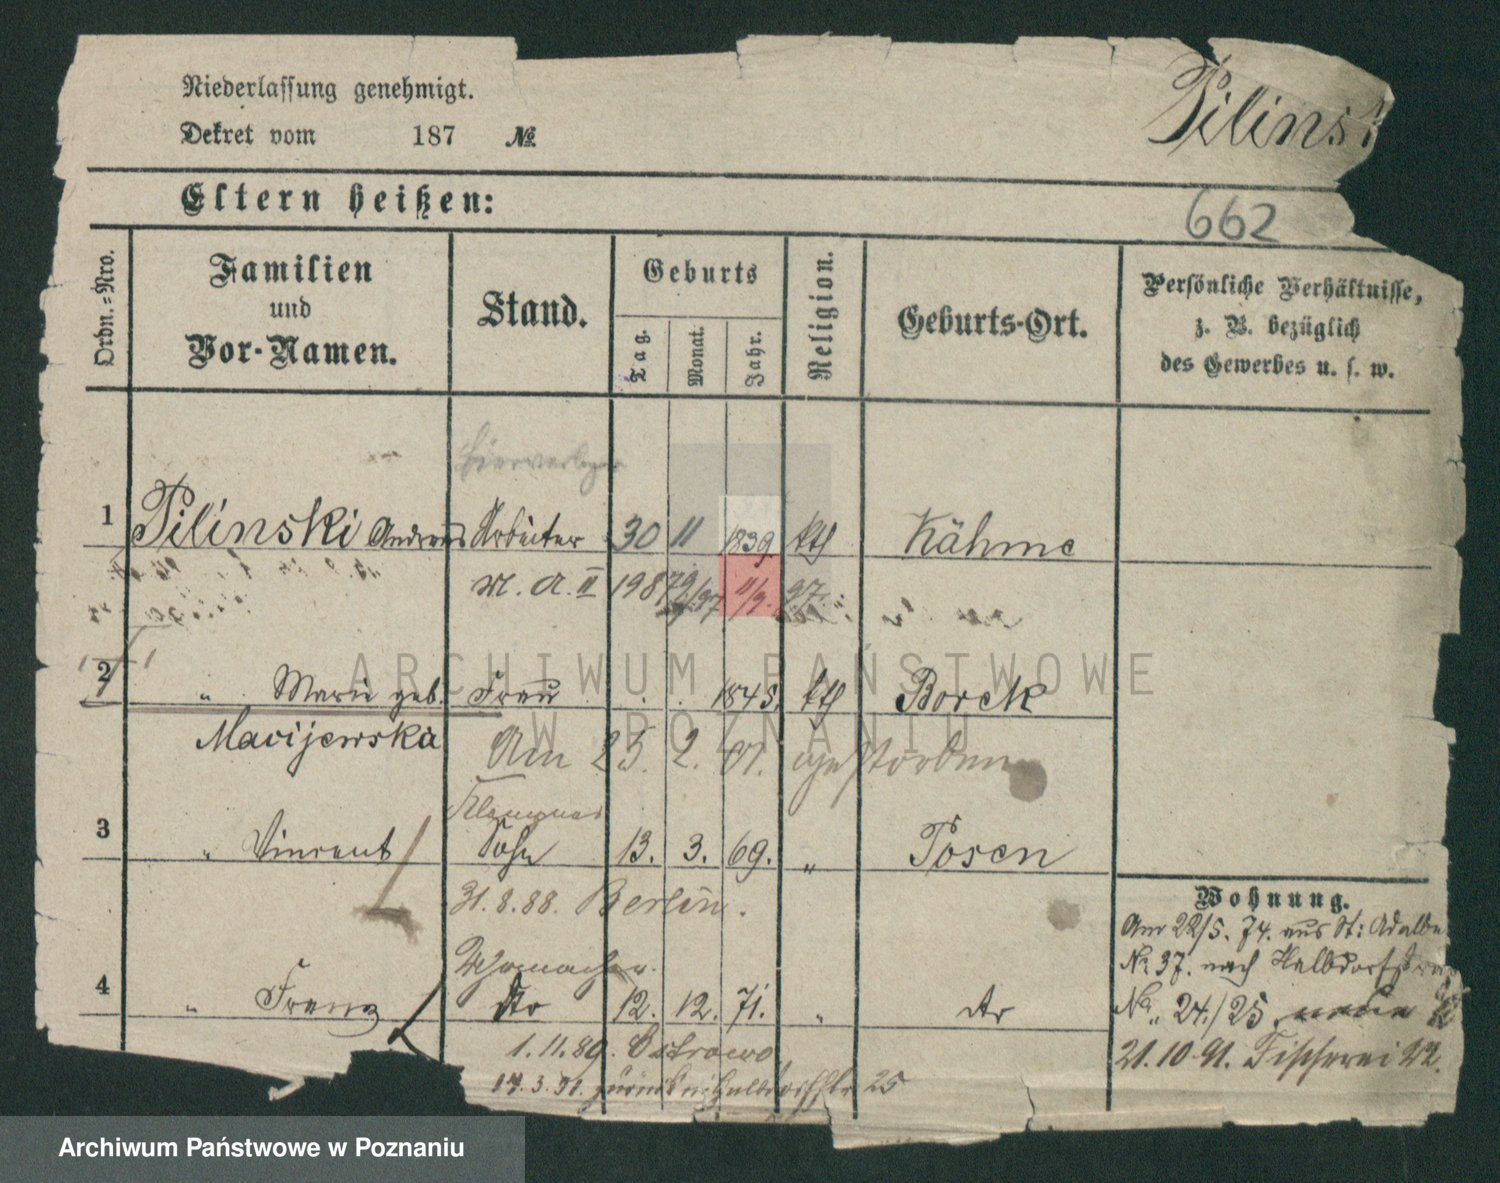 Niederlassung genehmigt.
Dekret vom 187 №
Pilinsk
Eltern heißen:
662
Ordn.-Nro.
Familien und Vor-Namen.
Stand.
Geburts
Tag.
Monat.
Jahr.
Religion.
Geburts-Ort.
Persönliche Verhältnisse,
z. B. bezüglich
des Gewerbes u. s. w.
Bierverleger
1 Pilinski Andreas Arbeiter 30 11 1839 kth Kähme
M. A. II 1987
2 " Marie geb. Frau 1845. kth Borek
Macijewska
Am 25. 2. 01. gestorben
3 " Vincent Sohn 13. 3. 69. " Posen
31.8.88. Berlin.
4 " Franz dto 12. 12. 71. " dto
1.11.89. Ostrowo
14.3.91. zurück n. Halbdorfstr 25
Wohnung.
Am 22/5. 74. aus St: Adalbe
№ 37. nach Halbdorfstra
№ 24./25
21.10.91. Fischerei 22.
ARCHIWUM PAŃSTWOWE
W POZNANIU
Archiwum Państwowe w Poznaniu